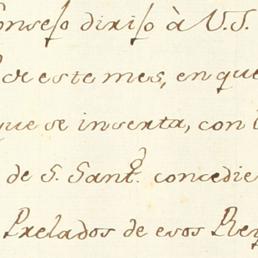 onsejo dirijo à V.S.
de este mes, en que
que se inserta, con
de S. Santd. concedie
Prelados de esos Rey